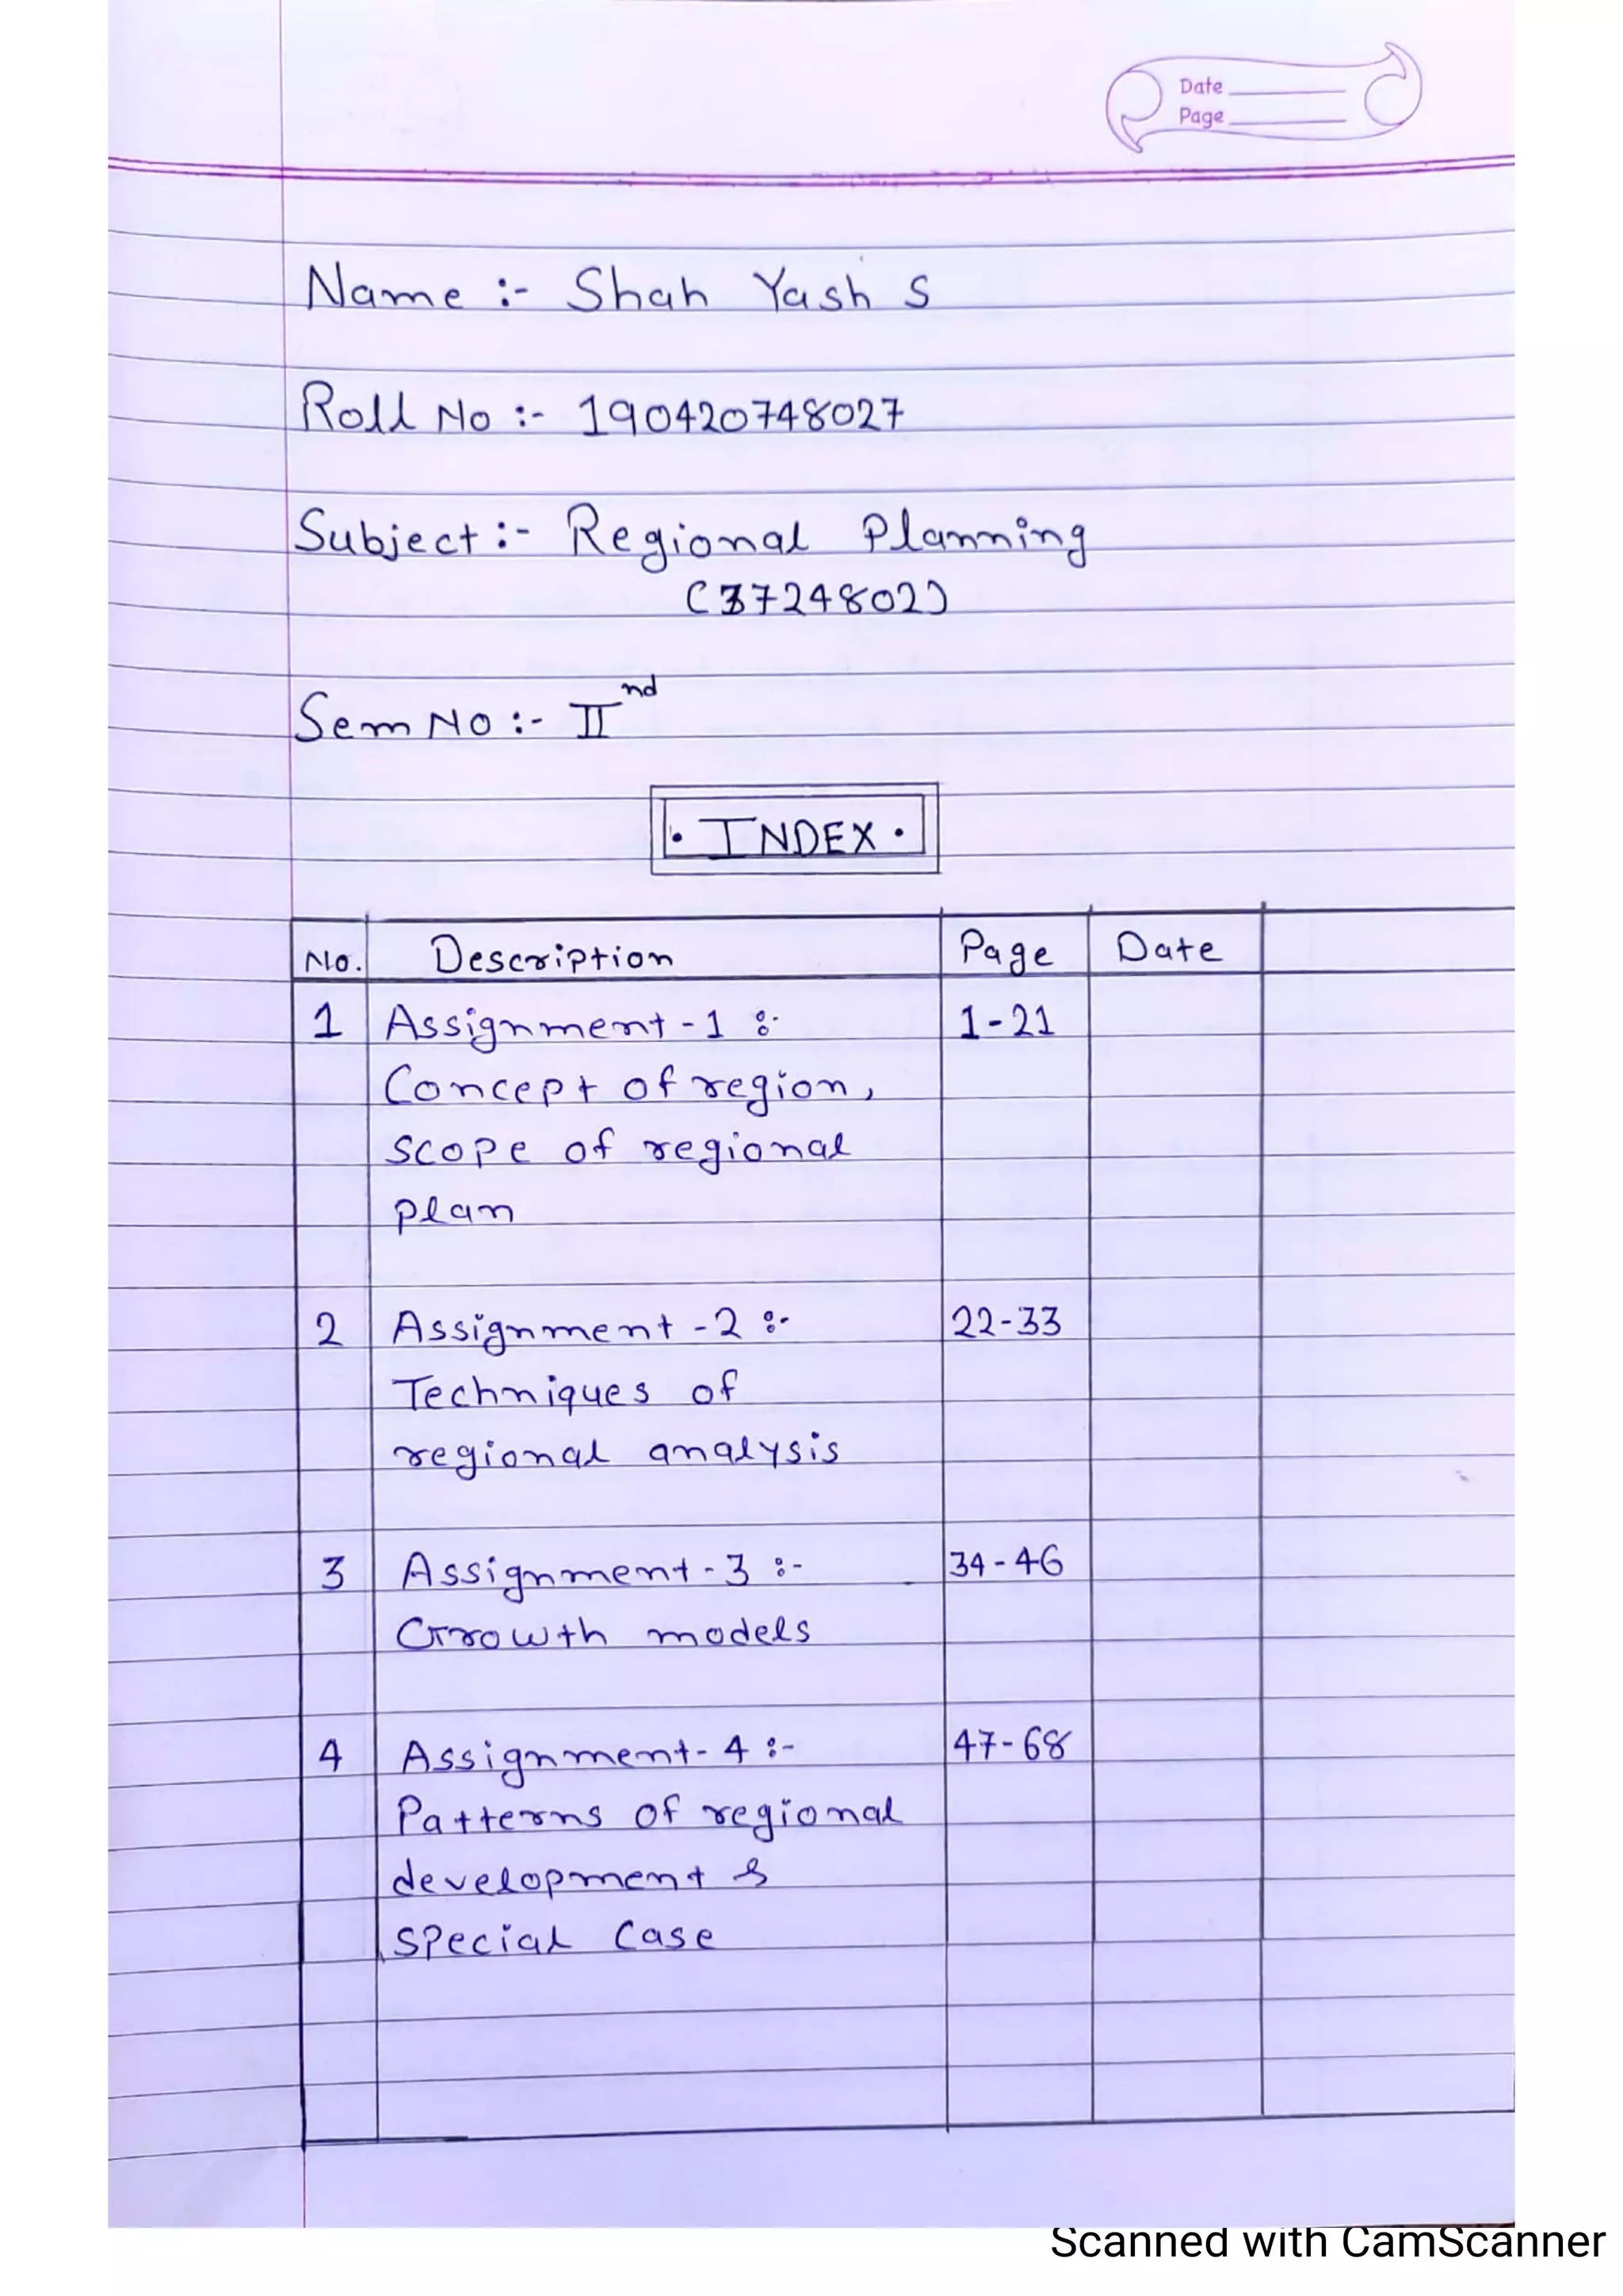 Date
Page
Name :- Shah Yash S
Roll No :- 190420748027
Subject :- Regional Planning
(3724802)
Sem No :- II nd
• INDEX •
No. Description Page Date
1 Assignment - 1 :- 1-21
Concept of region,
scope of regional
plan
2 Assignment - 2 :- 22-33
Techniques of
regional analysis
3 Assignment - 3 :- 34-46
Growth models
4 Assignment - 4 :- 47-68
Patterns of regional
development &
special case
Scanned with CamScanner